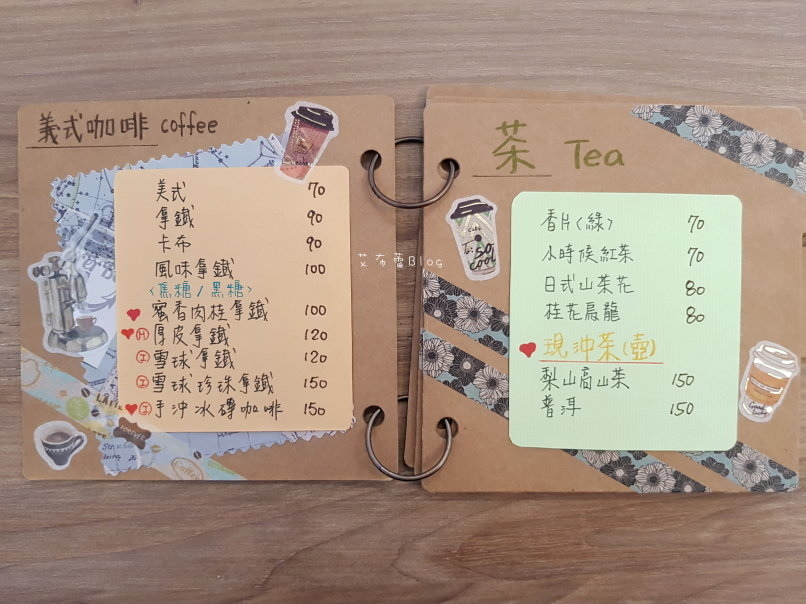 義式咖啡 coffee
美式 70
拿鐵 90
卡布 90
風味拿鐵 100
<焦糖/黑糖>
蜜香肉桂拿鐵 100
H 厚皮拿鐵 120
I 雪球拿鐵 120
I 雪球珍珠拿鐵 150
I 手沖冰磚咖啡 150
茶 Tea
香片(綠) 70
小時候紅茶 70
日式山茶花 80
桂花烏龍 80
現沖茶(壺)
梨山高山茶 150
普洱 150
café
So
cool
Coffee
艾布蕾Blog